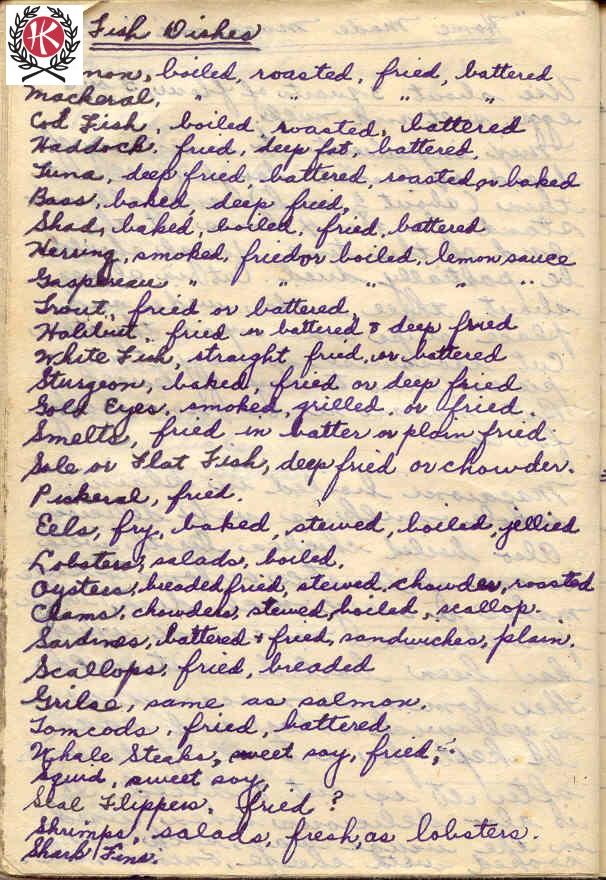 HK
Fish Dishes
mon, boiled, roasted, fried, battered
Mackeral, " " " "
Cod Fish, boiled, roasted, battered
Haddock, fried, deep fat, battered,
Tuna, deep fried, battered, roasted or baked
Bass, baked, deep fried,
Shad, baked, boiled, fried, battered
Herring, smoked, fried or boiled, lemon sauce
Gaspereau " " " " "
Trout, fried or battered,
Halibut, fried or battered & deep fried
White Fish, straight fried, or battered
Sturgeon, baked, fried or deep fried
Gold Eyes, smoked, grilled, or fried.
Smelts, fried in batter or plain fried.
Sole or Flat Fish, deep fried or chowder.
Pickeral, fried.
Eels, fry, baked, stewed, boiled, jellied
Lobsters, salads, boiled.
Oysters, breaded fried, stewed, chowder, roasted
Clams, chowders, stewed, boiled, scallop.
Sardines, battered + fried, sandwiches, plain.
Scallops, fried, breaded
Grilse, same as salmon.
Tomcods, fried, battered
Whale Steaks, sweet soy, fried,
Squid, sweet soy,
Seal Flippers, fried ?
Shrimps, salads, fresh, as lobsters.
Shark Fins.